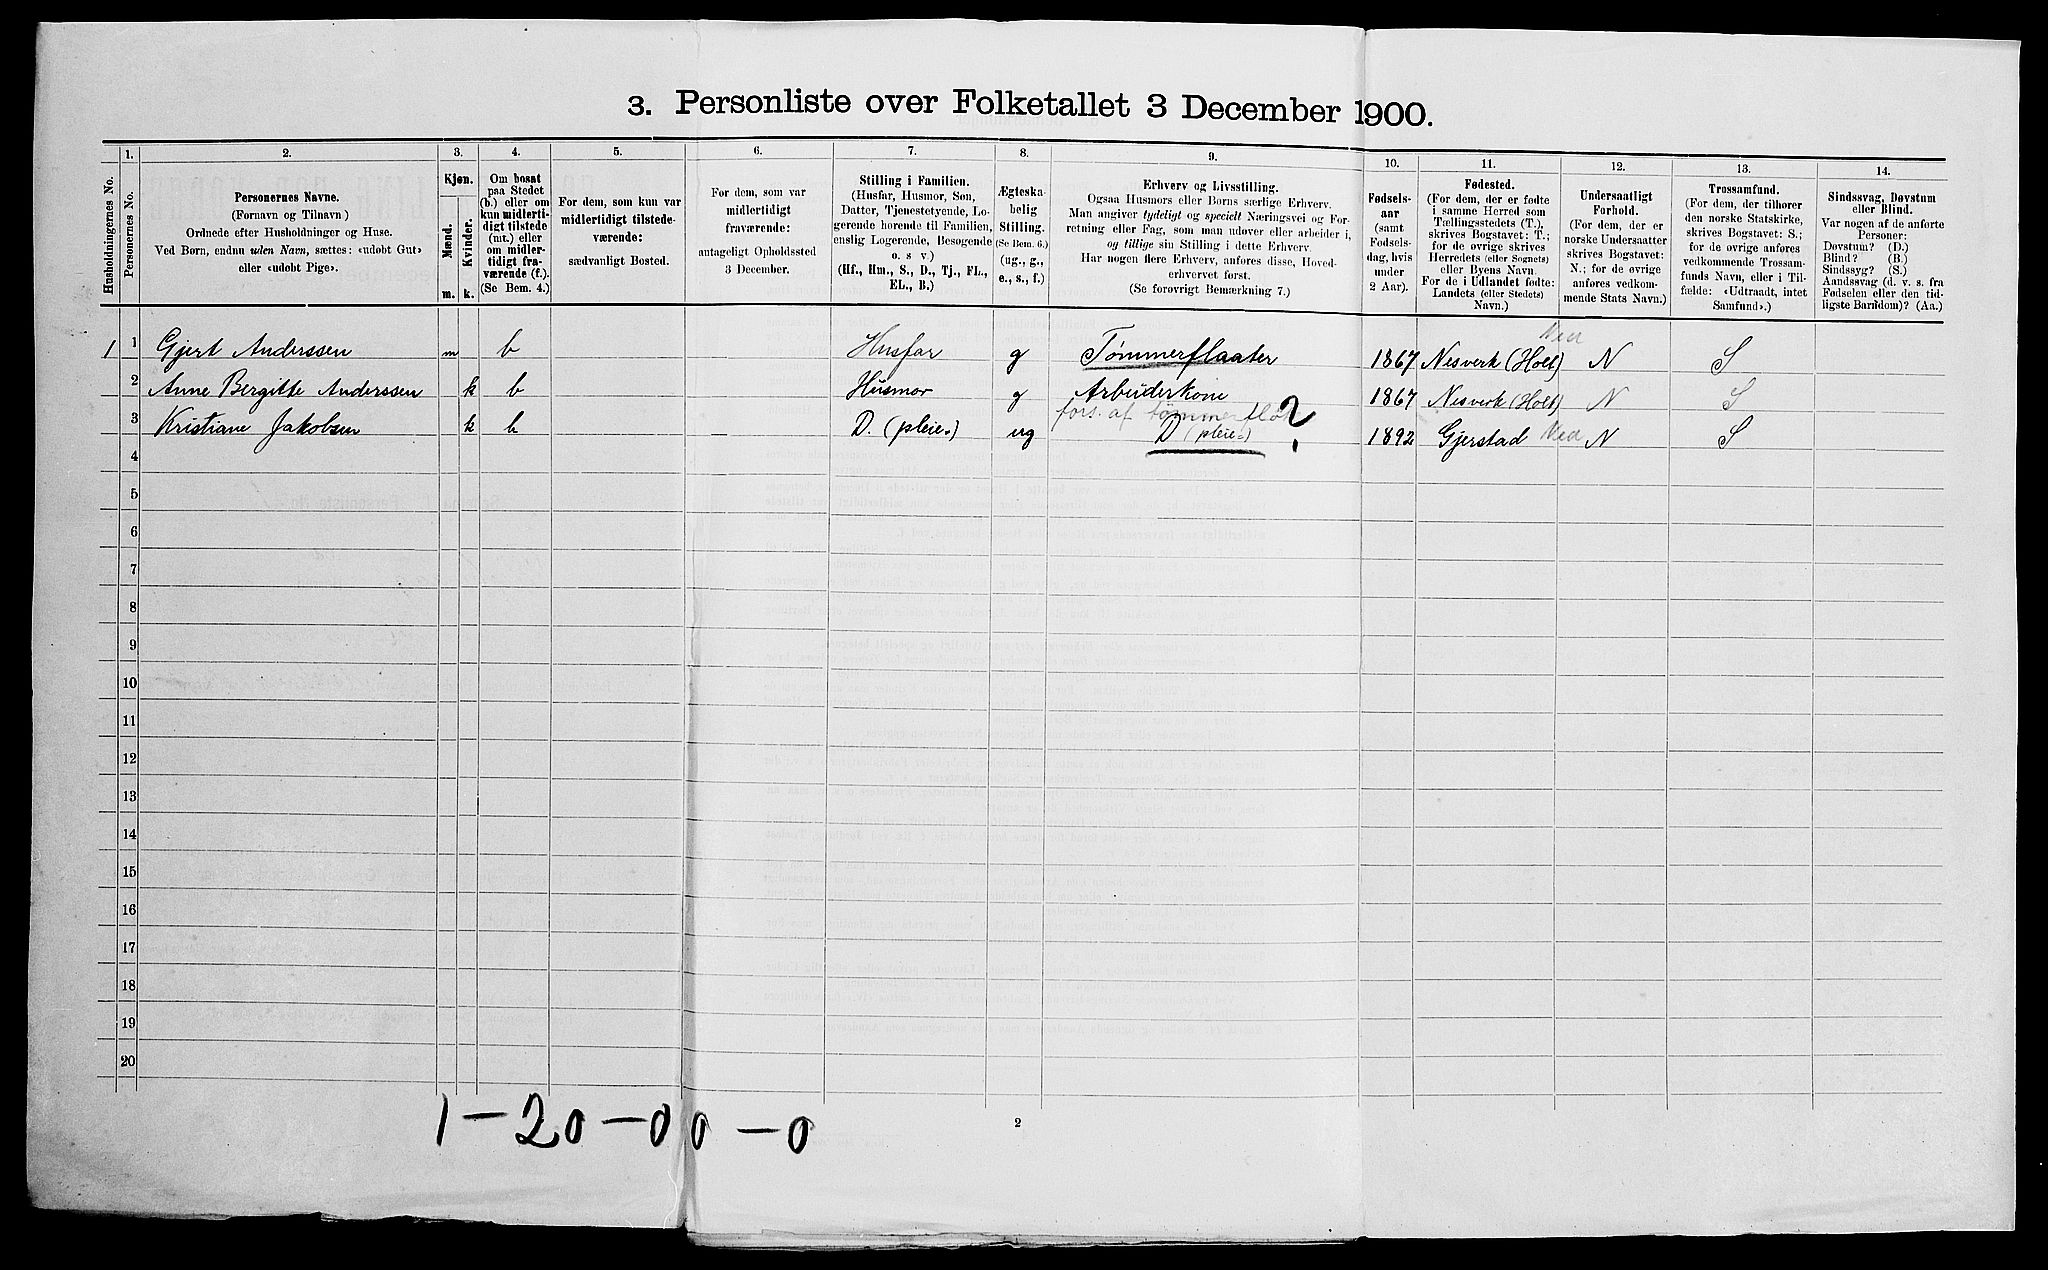 3. Personliste over Folketallet 3 December 1900.
1. 2. 3. 4. 5. 6. 7. 8. 9. 10. 11. 12. 13. 14.
Husholdningernes No.
Personernes No.
Personernes Navne.
(Fornavn og Tilnavn)
Ordnede efter Husholdninger og Huse.
Ved Børn, endnu uden Navn, sættes: «udøbt Gut»
eller «udøbt Pige».
Kjøn.
Mænd.
Kvinder.
m. k.
Om bosat
paa Stedet
(b.) eller om
kun midlerti-
digt tilstede
(mt.) eller
om midler-
tidigt fra-
værende (f.).
(Se Bem. 4.)
For dem, som kun var
midlertidigt tilstede-
værende:
sædvanligt Bosted.
For dem, som var
midlertidigt
fraværende:
antageligt Opholdssted
3 December.
Stilling i Familien.
(Husfar, Husmor, Søn,
Datter, Tjenestetyende, Lo-
gerende hørende til Familien,
enslig Logerende, Besøgende
o. s v)
(Hf., Hm., S., D., Tj., FL.,
EL., B.)
Ægteska-
belig
Stilling.
(Se Bem. 6.)
(ug., g.,
e., s., f.)
Erhverv og Livsstilling.
Ogsaa Husmors eller Børns særlige Erhverv.
Man angiver tydeligt og specielt Næringsvei og For-
retning eller Fag, som man udøver eller arbeider i,
og tillige sin Stilling i dette Erhverv.
Har nogen flere Erhverv, anføres disse, Hoved-
erhvervet først.
(Se forøvrigt Bemærkning 7.)
Fødsels-
aar
(samt
Fødsels-
dag, hvis
under
2 Aar).
Fødested.
(For dem, der er fødte
i samme Herred som
Tællingsstedets (T.),
skrives Bogstavet: T.;
for de øvrige skrives
Herredets (eller Sognets)
eller Byens Navn.
For de i Udlandet fødte:
Landets (eller Stedets)
Navn.)
Undersaatligt
Forhold.
(For dem, der er
norske Undersaatter
skrives Bogstavet:
N.; for de øvrige
anføres vedkom-
mende Stats Navn.)
Trossamfund.
(For dem, der tilhører
den norske Statskirke,
skrives Bogstavet: S.;
for de øvrige anføres
vedkommende Trossam-
funds Navn, eller i Til-
fælde: «Udtraadt, intet
Samfund».)
Sindssvag, Døvstum
eller Blind.
Var nogen af de anførte
Personer:
Døvstum? (D.)
Blind? (B.)
Sindssyg? (S.)
Aandssvag (d. v. s. fra
Fødselen eller den tid-
ligste Barndom)? (Aa.)
Ned
1 1 Gjert Anderssen m b Husfar g Tømmerflaater 1867 Nesverk (Holt) N S
2 Anne Bergitte Anderssen k b Husmor g Arbeiderkone 1867 Nesverk (Holt) N S
fors. af tømmerfløt ?
3 Kristiane Jakobsen k b D. (pleie-) ug D (pleie-) 1892 Gjerstad Ned N S
4
5
6
7
8
9
10
11
12
13
14
15
16
17
18
19
20
1 – 20 – 0 0 – 0
2